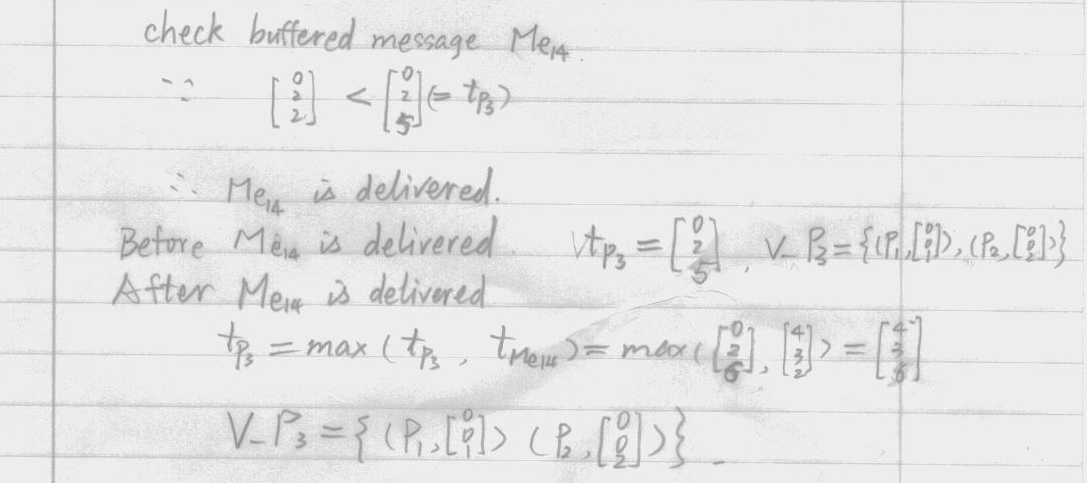 check buffered message Me14.
∵ [0 2 2] < [0 2 5] (= tP3)
∴ Me14 is delivered.
Before Me14 is delivered. VtP3 = [0 2 5], V_P3 = {(P1, [0 0 1]), (P2, [0 0 2])}
After Me14 is delivered
tP3 = max (tP3, tMe14) = max ([0 2 6], [4 3 2]) = [4 3 6]
V_P3 = {(P1, [0 0 1]) (P2, [0 0 2])}